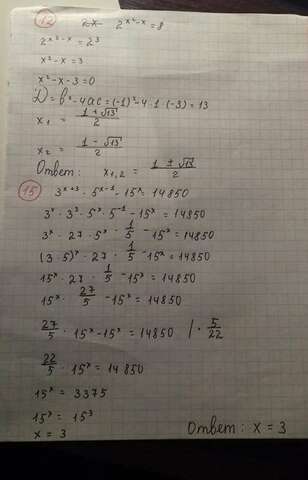 12 2^{x²-x}=8
2^{x²-x}=2³
x²-x=3
x²-x-3=0
D=b²-4ac=(-1)²-4·1·(-3)=13
x₁ = (1+√13)/2
x₂ = (1-√13)/2
Ответ: x₁,₂ = (1±√13)/2
15 3^{x+3}·5^{x-1}-15^x=14850
3^x·3³·5^x·5^{-1}-15^x=14850
3^x·27·5^x·1/5-15^x=14850
(3·5)^x·27·1/5-15^x=14850
15^x·27·1/5-15^x=14850
15^x·27/5-15^x=14850
27/5·15^x-15^x=14850 |·5/22
22/5·15^x=14850
15^x=3375
15^x=15³
x=3 Ответ: x=3